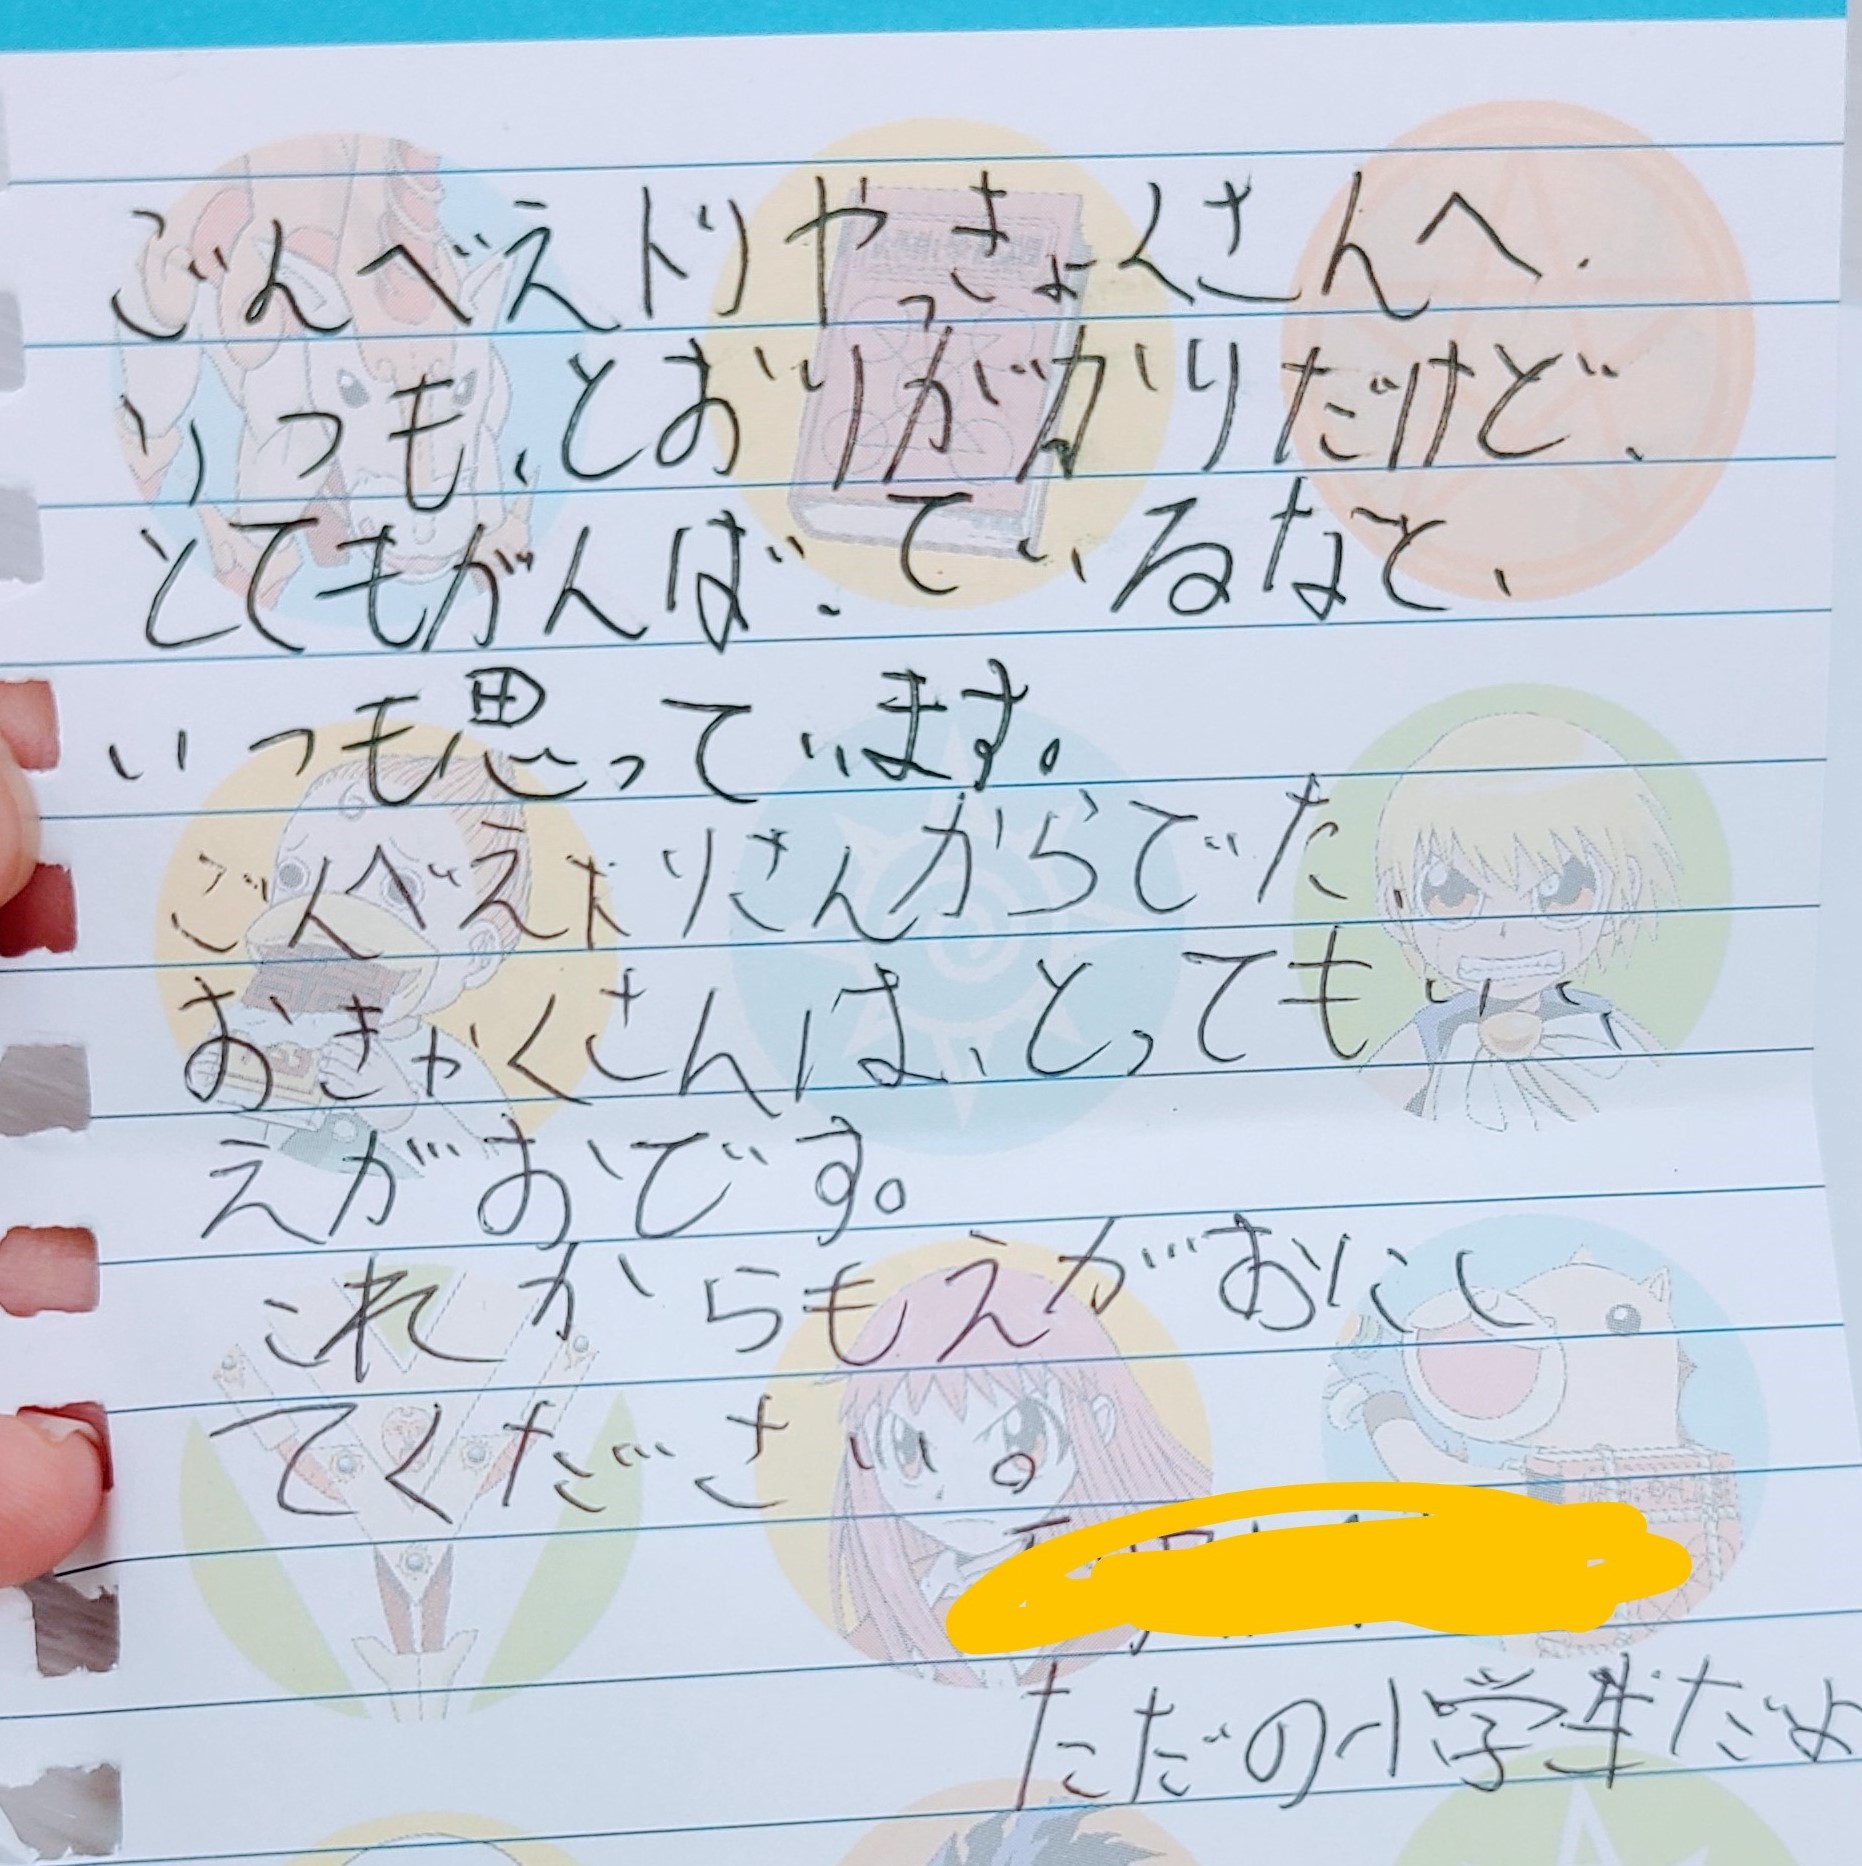 ごんべえドリやっきょくさんへ.
いつも、とおりがかりだけど、
とてもがんばっているなと、
いつも思っています。
ごんべえドリさんからでた
おきゃくさんは、とってもいい
えがおです。
これからもえがおにし
てください。
ただの小学生だよ